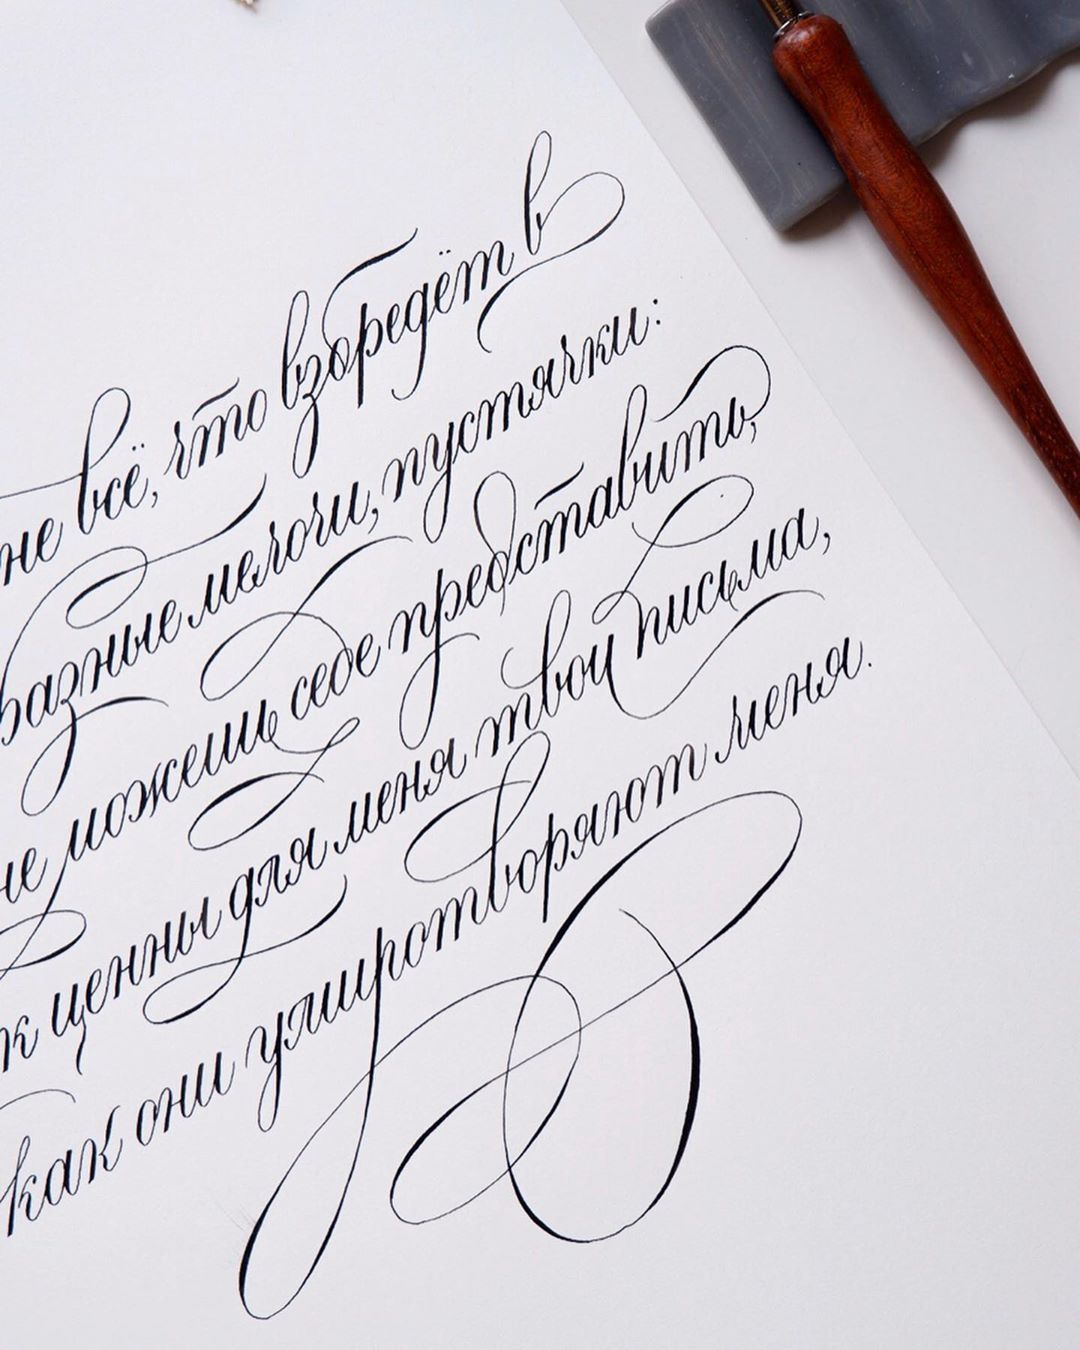 не всё, что взбредёт в
разные мелочи, пустячки:
не можешь себе представить,
к ценны для меня твои письма,
как они умиротворяют меня.